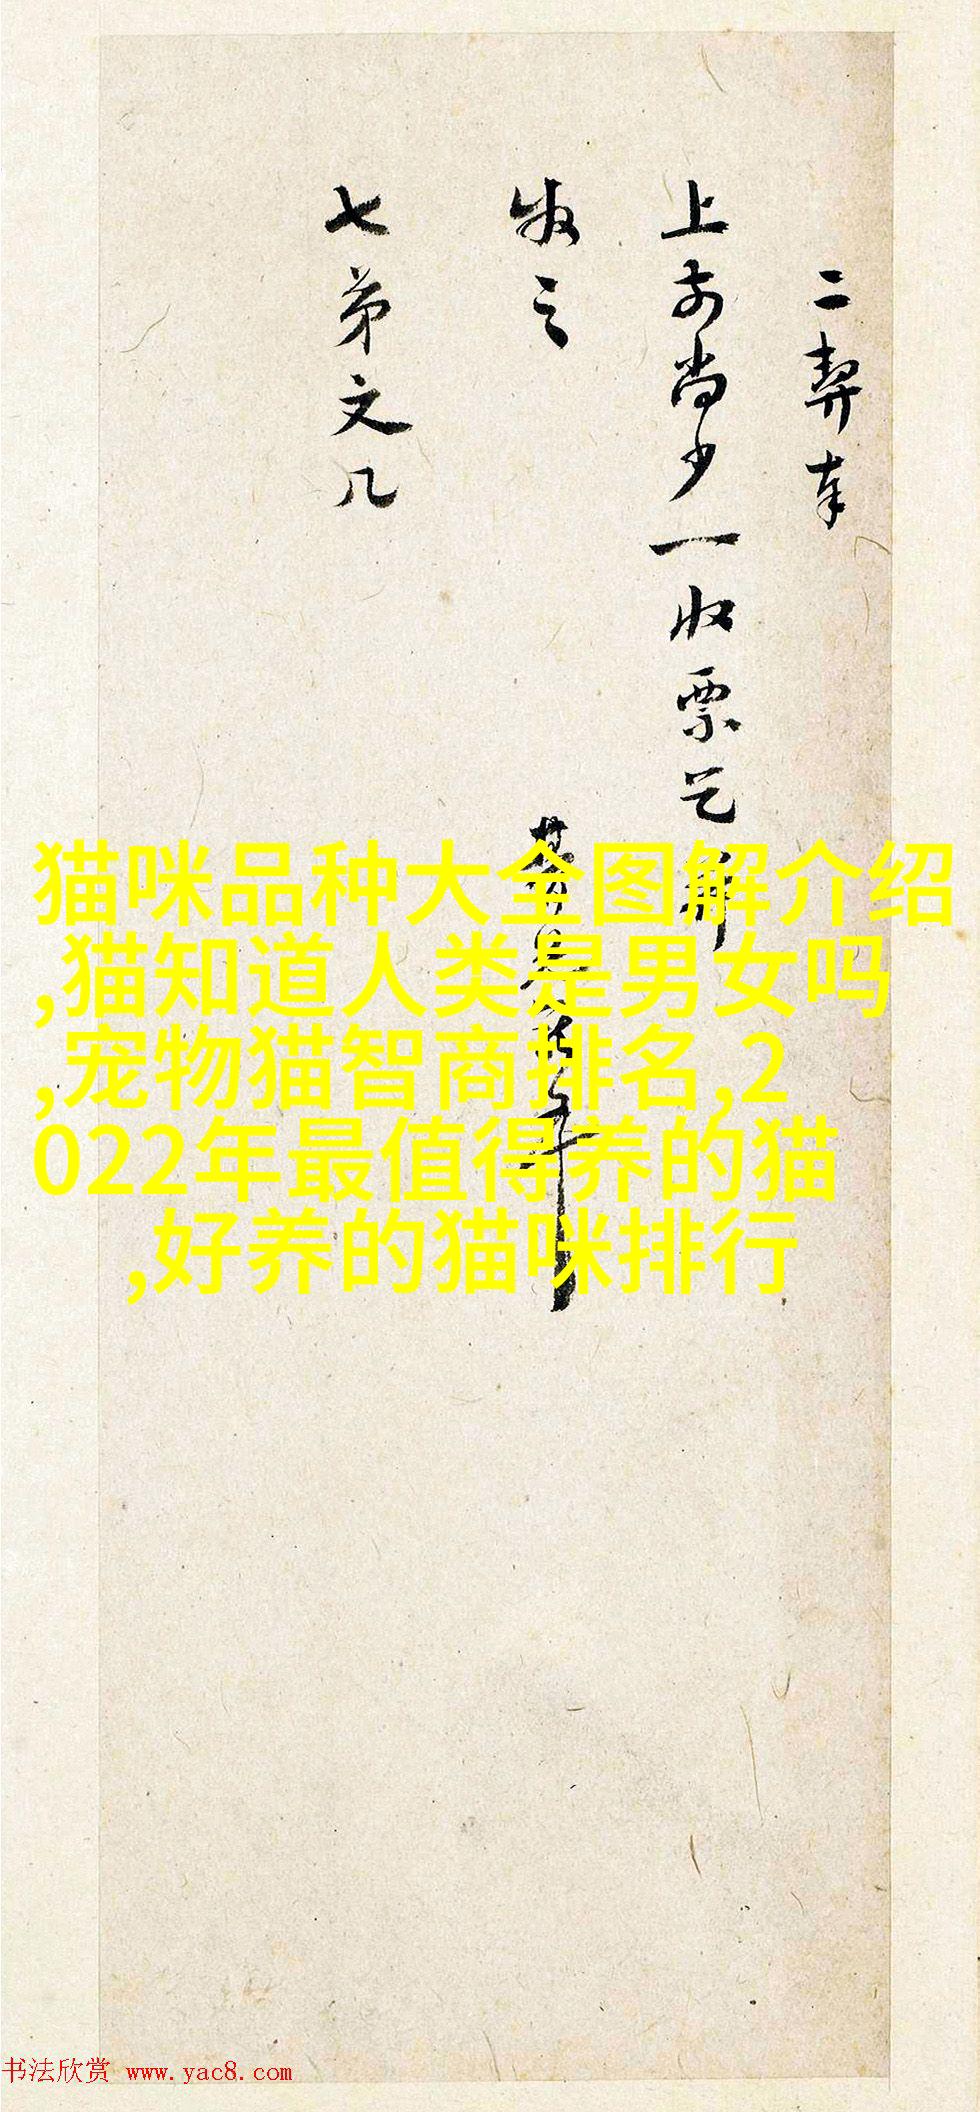 二契奉
上前尚少一收票乞
收之
七弟文几
猫咪品种大全图解介绍
,猫知道人类是男女吗
,宠物猫智商排名,2
022年最值得养的猫
,好养的猫咪排行
书法欣赏 www.yac8.com